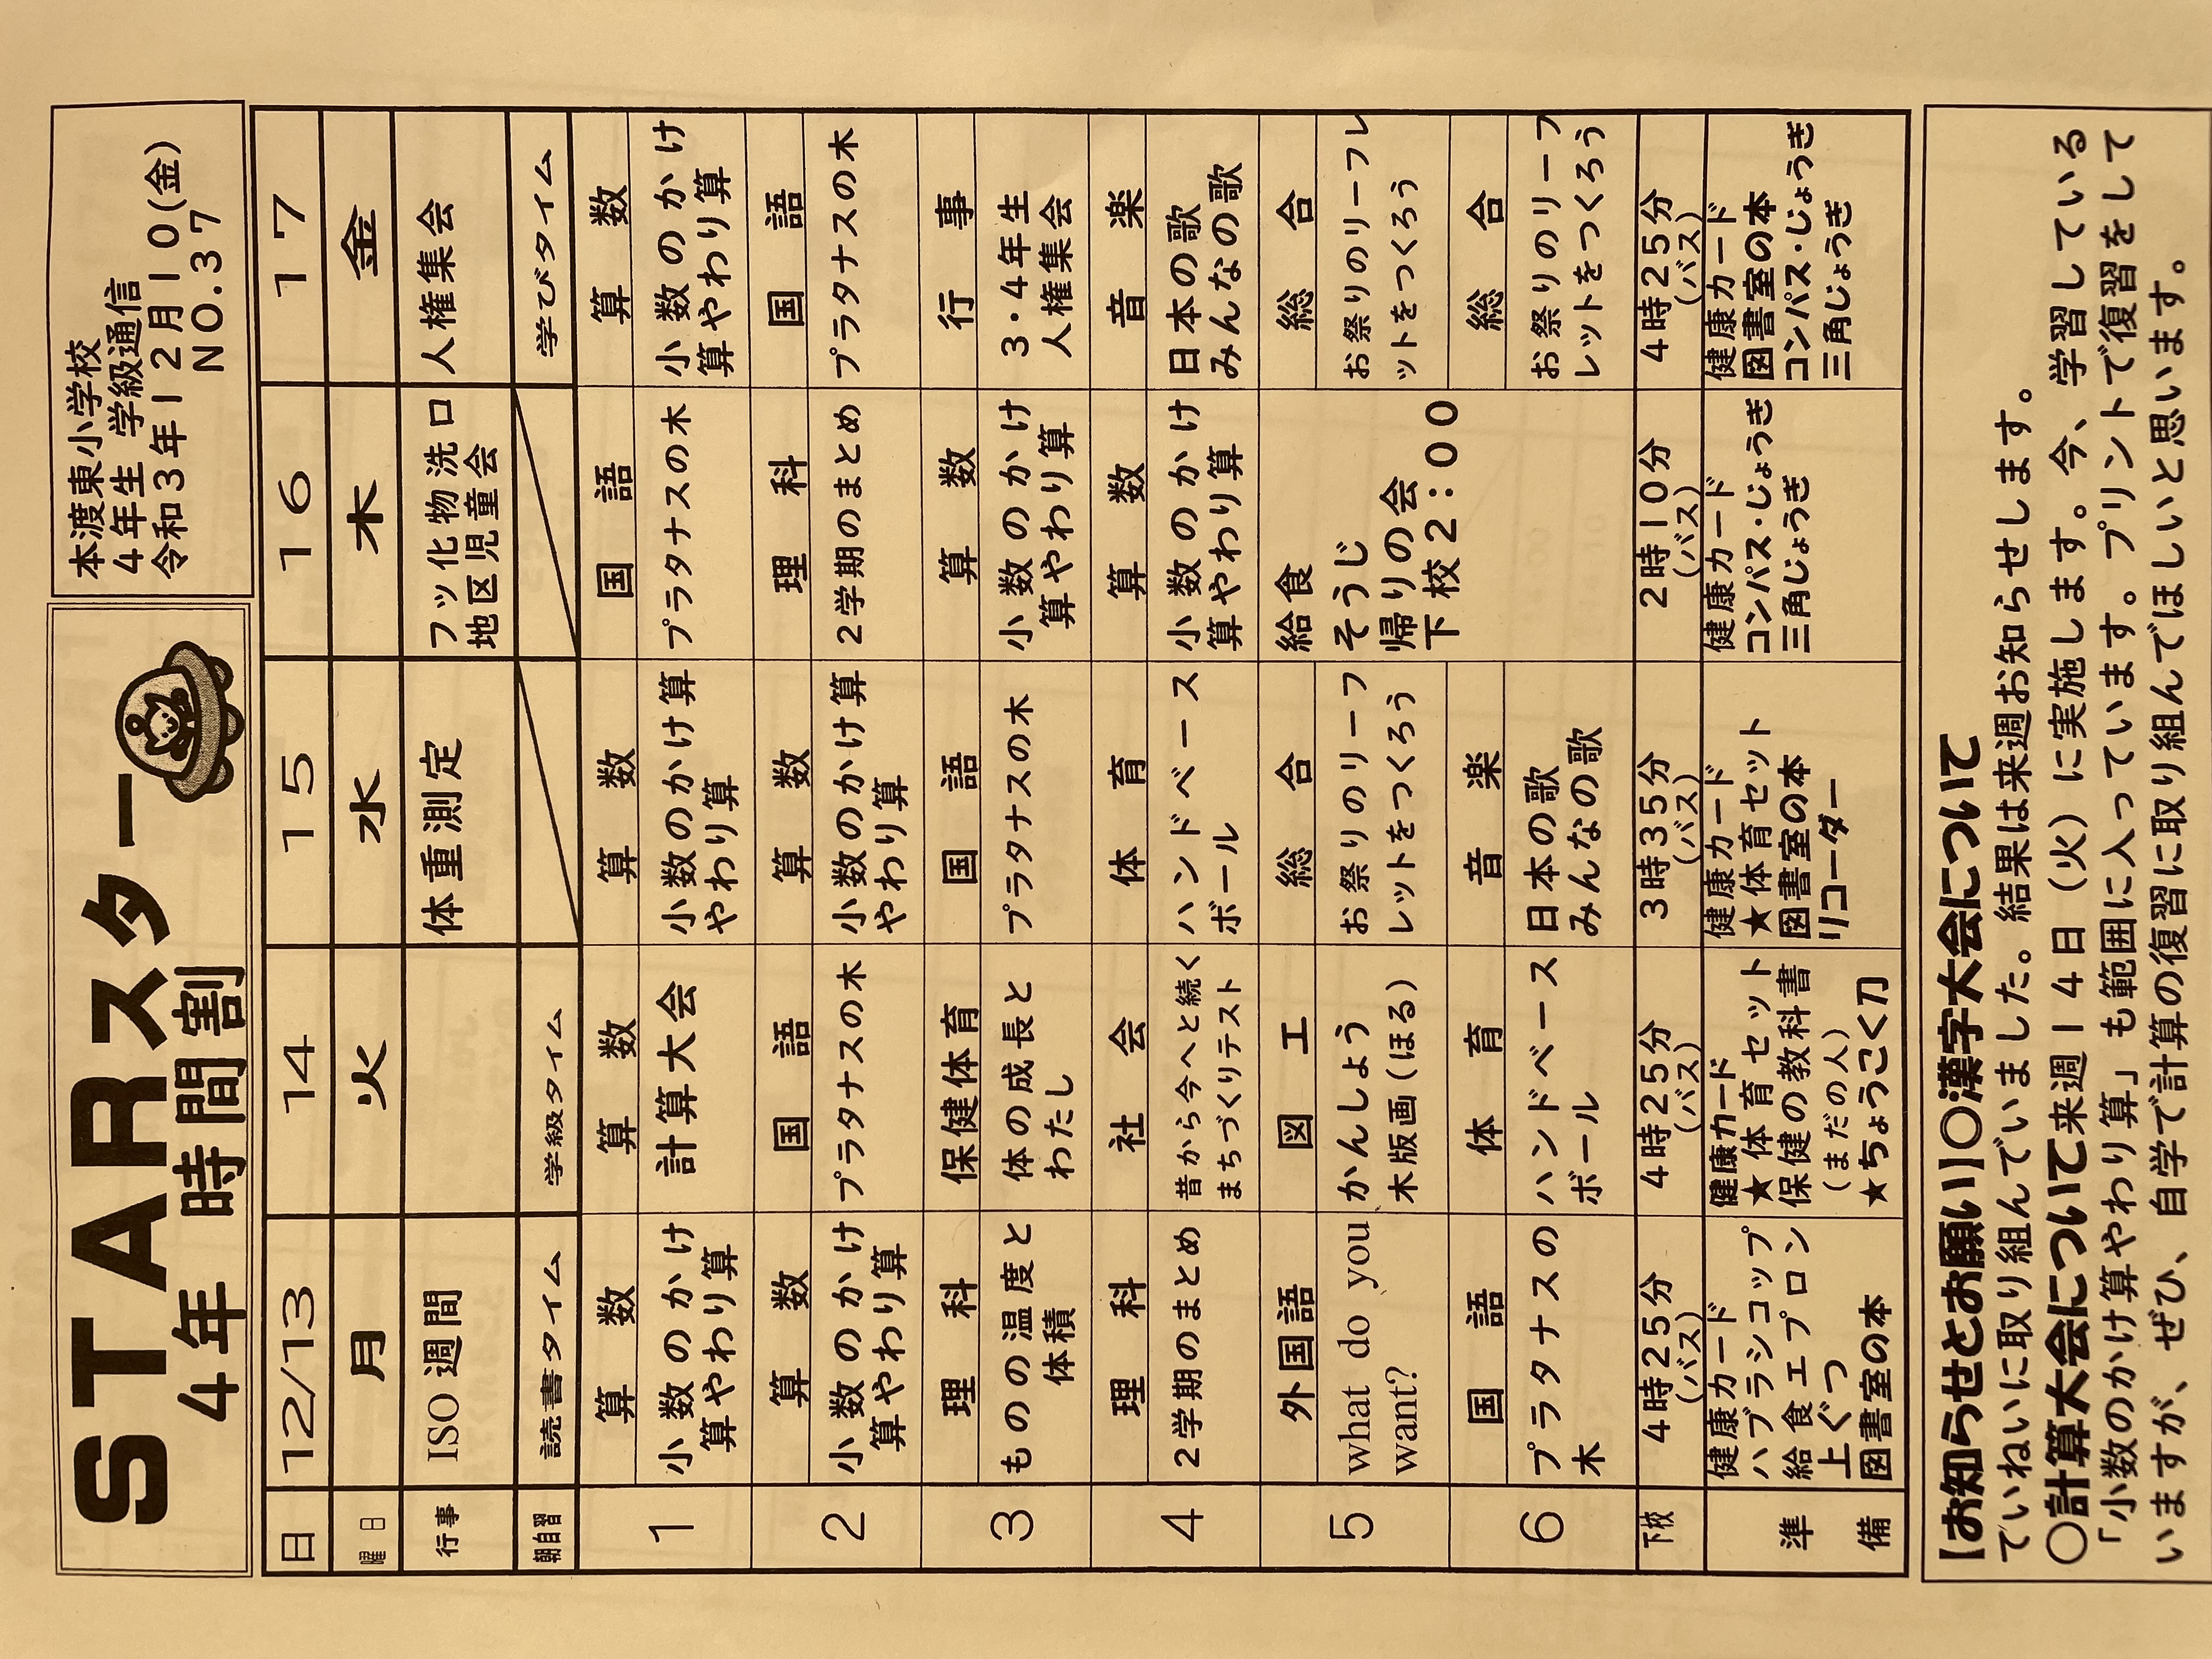 STARスター
4年時間割
本渡東小学校
4年生 学級通信
令和3年12月10(金)
NO.37
日 12/13 14 15 16 17
曜日 月 火 水 木 金
行事 ISO週間 体重測定 フッ化物洗口 人権集会
地区児童会
朝自習 読書タイム 学級タイム 学びタイム
1 算数 算数 算数 国語 算数
小数のかけ 計算大会 小数のかけ算 プラタナスの木 小数のかけ
算やわり算 やわり算 算やわり算
2 算数 国語 算数 理科 国語
小数のかけ プラタナスの木 小数のかけ算 2学期のまとめ プラタナスの木
算やわり算 やわり算
3 理科 保健体育 国語 算数 行事
ものの温度と 体の成長と プラタナスの木 小数のかけ 3・4年生
体積 わたし 算やわり算 人権集会
4 理科 社会 体育 算数 音楽
2学期のまとめ 昔から今へと続く ハンドベース 小数のかけ 日本の歌
まちづくりテスト ボール 算やわり算 みんなの歌
5 外国語 図工 総合 給食 総合
what do you かんしょう お祭りのリーフ そうじ お祭りのリーフレ
want? 木版画(ほる) レットをつくろう 帰りの会 ットをつくろう
下校2:00
6 国語 体育 音楽 総合
プラタナスの ハンドベース 日本の歌 お祭りのリーフ
木 ボール みんなの歌 レットをつくろう
下校 4時25分 4時25分 3時35分 2時10分 4時25分
(バス) (バス) (バス) (バス) (バス)
準備 健康カード 健康カード 健康カード 健康カード 健康カード
ハブラシコップ ★体育セット ★体育セット コンパス・じょうぎ 図書室の本
給食エプロン 保健の教科書 図書室の本 三角じょうぎ コンパス・じょうぎ
上ぐつ (まだの人) リコーダー 三角じょうぎ
図書室の本 ★ちょうこく刀
【お知らせとお願い】〇漢字大会について
ていねいに取り組んでいました。結果は来週お知らせします。
〇計算大会について来週14日(火)に実施します。今、学習している
「小数のかけ算やわり算」も範囲に入っています。プリントで復習をして
いますが、ぜひ、自学で計算の復習に取り組んでほしいと思います。